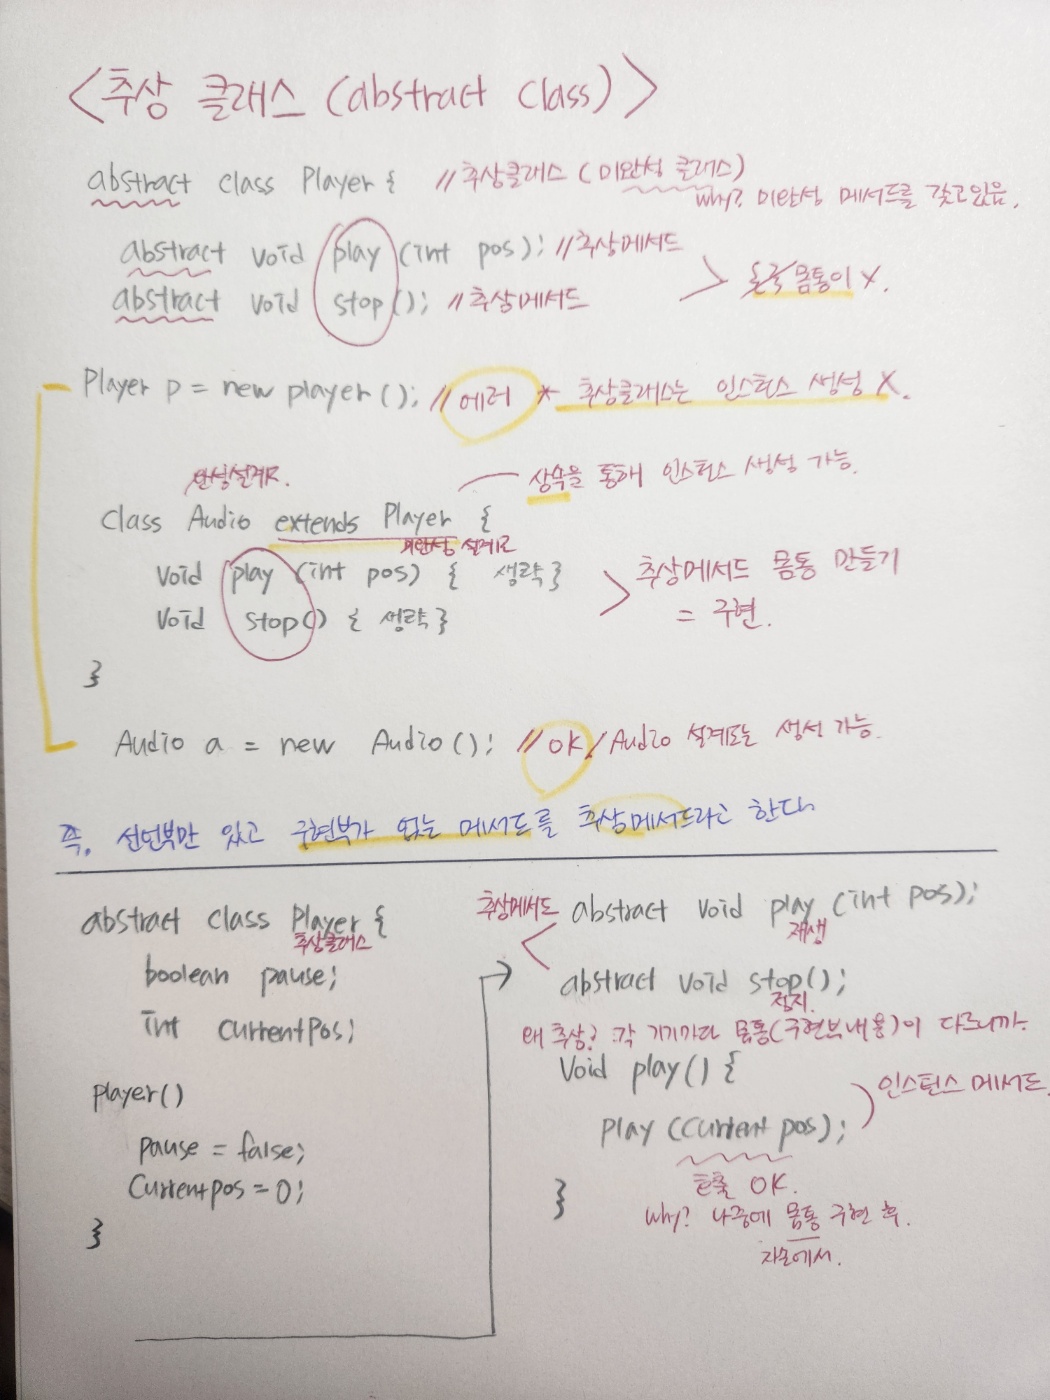 <추상 클래스 (abstract class)>
abstract class Player { //추상클래스 (미완성 클래스)
why? 미완성 메서드를 갖고있음.
abstract void play (int pos); //추상메서드
abstract void stop(); //추상메서드
몸통이 X.
Player p = new player(); //에러 * 추상클래스는 인스턴스 생성 X.
완성설계도. 상속을 통해 인스턴스 생성 가능.
Class Audio extends Player {
미완성 설계도
void play (int pos) { 생략}
void stop() { 생략}
추상메서드 몸통 만들기
= 구현.
}
Audio a = new Audio(); //OK/Audio 설계도는 생성 가능.
즉, 선언부만 있고 구현부가 없는 메서드를 추상메서드라고 한다.
abstract class Player {
추상클래스
boolean pause;
int currentPos;
Player()
pause = false;
Currentpos = 0;
}
추상메서드 abstract void play (int pos);
재생
abstract void stop();
정지.
왜 추상? 각 기기마다 몸통(구현부내용)이 다르니까.
Void play() {
인스턴스 메서드.
play (current pos);
호출 OK.
}
why? 나중에 몸통 구현 후.
자손에서.